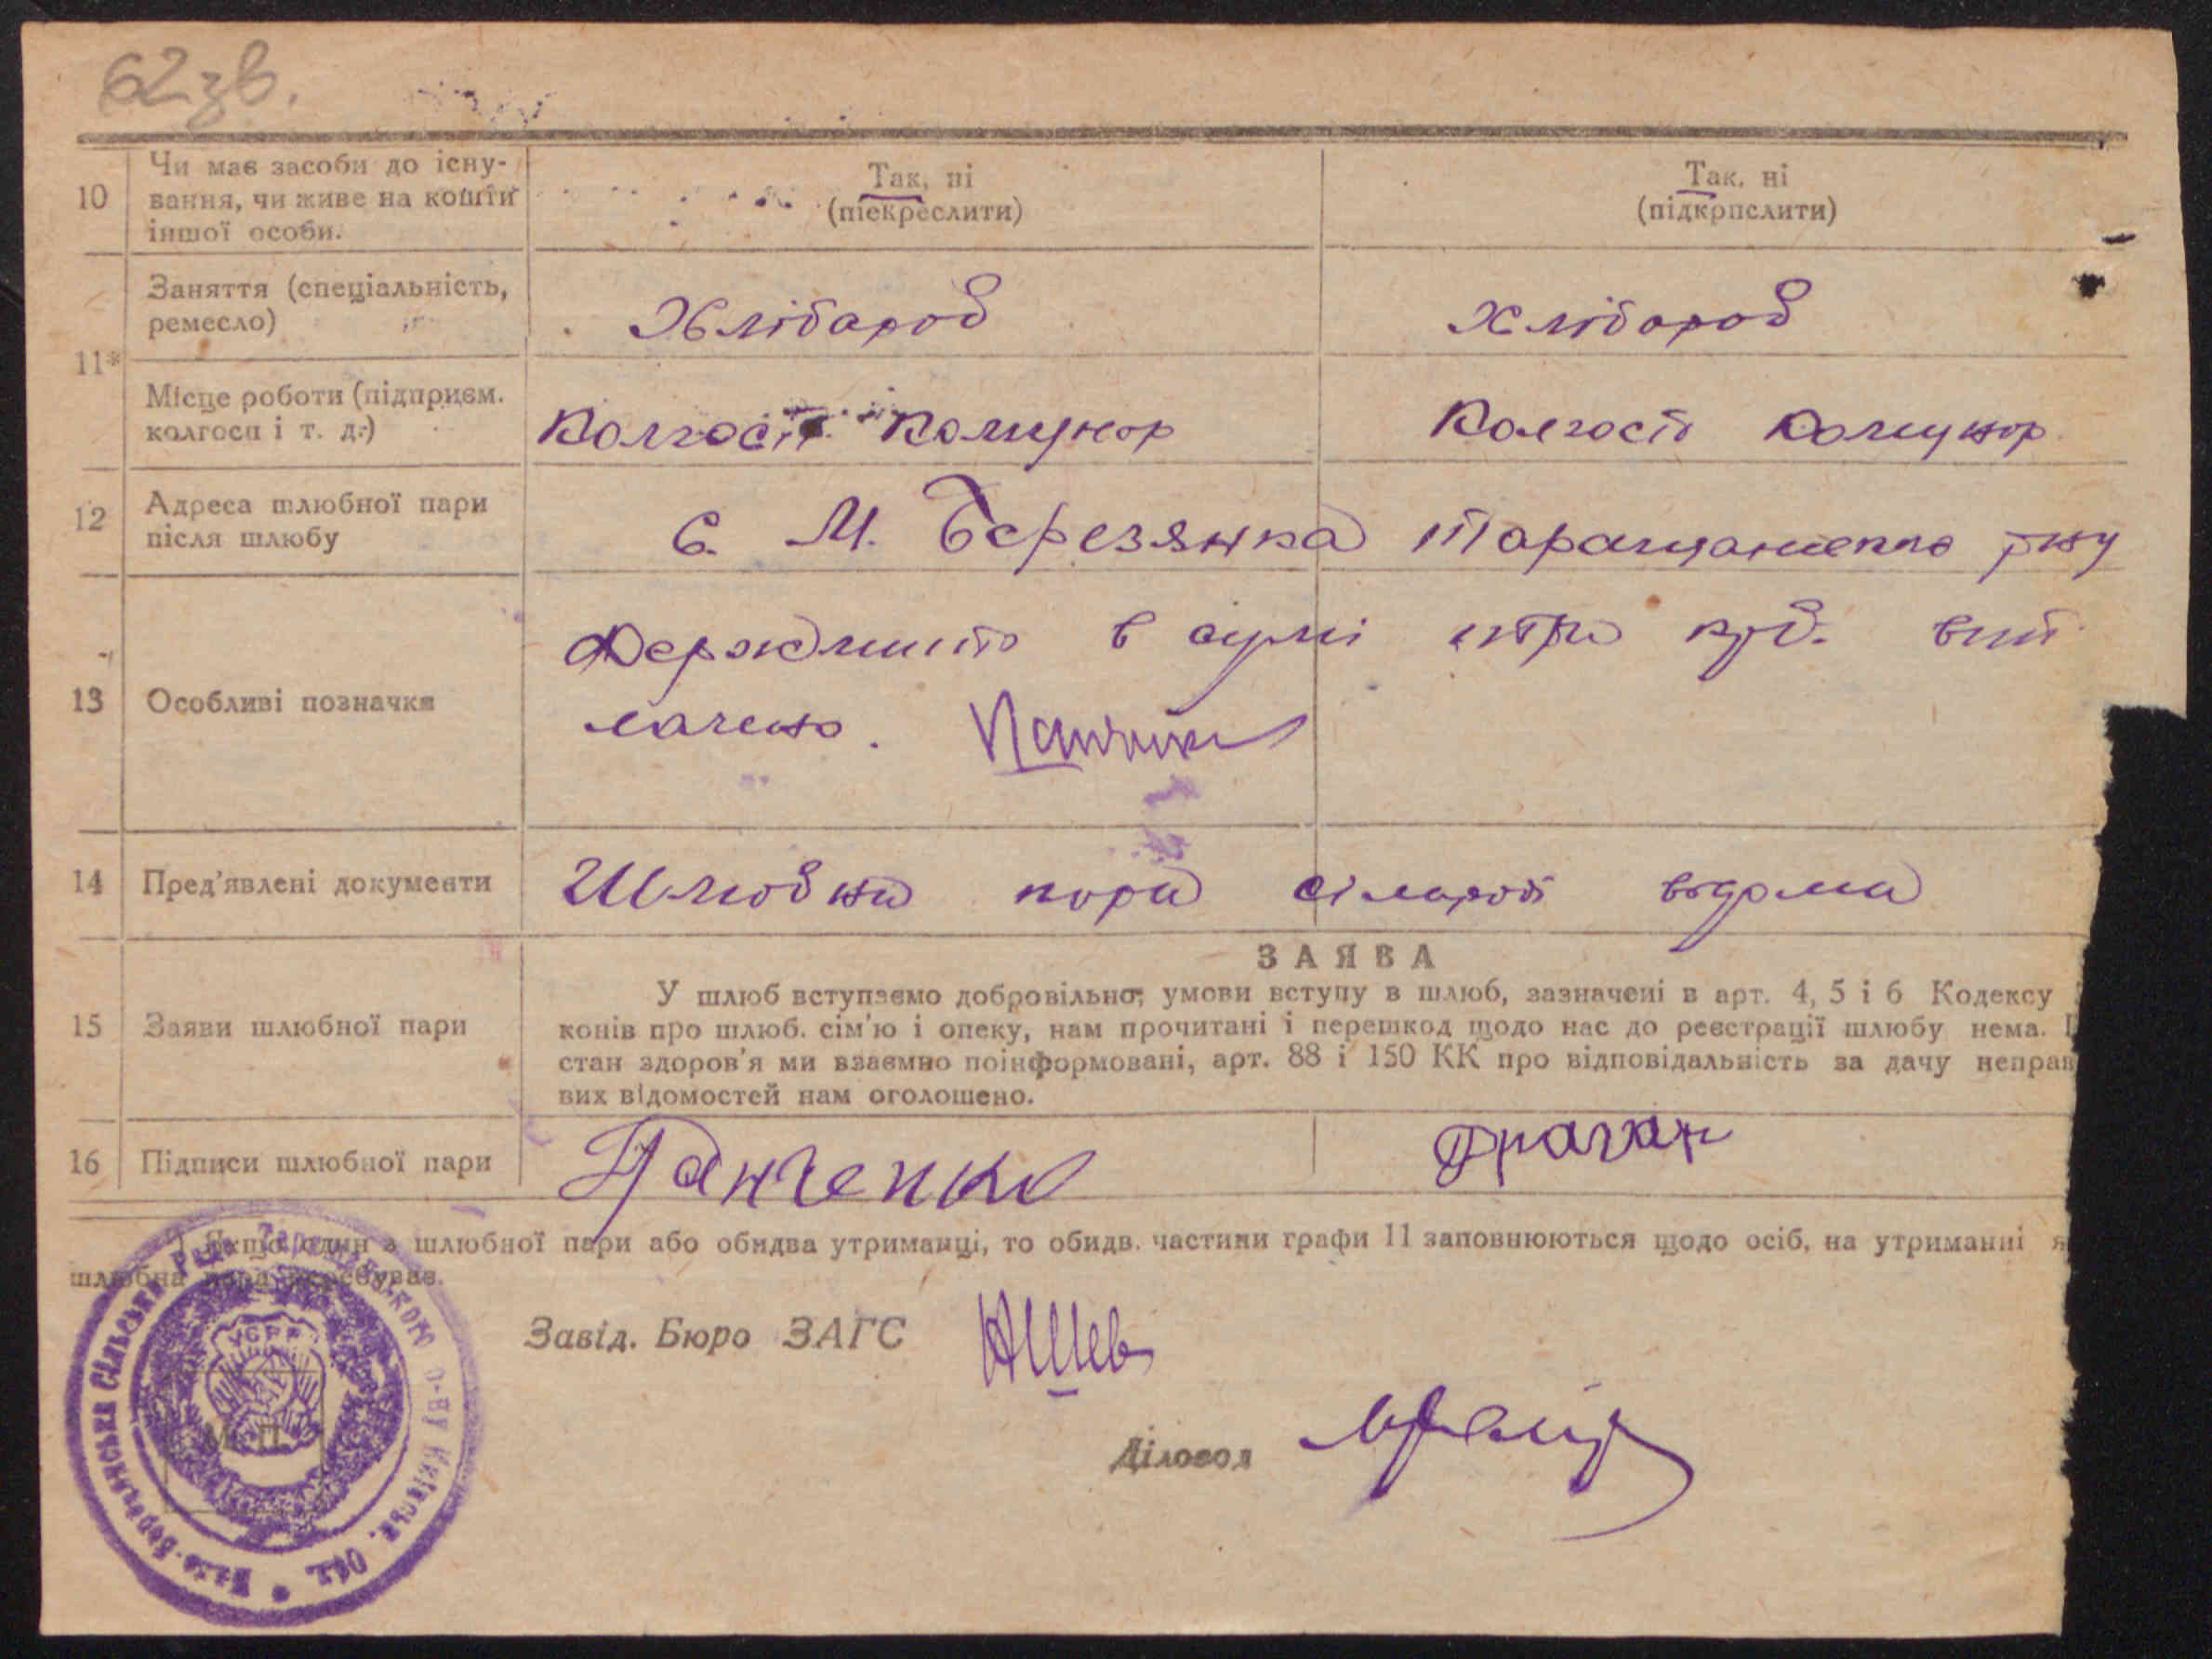 62 зв.
10 Чи має засоби до існу-
вання, чи живе на кошти
іншої особи.
Так, ні
(піекреслити)
Так, ні
(підкрпслити)
11*
Заняття (спеціальність,
ремесло)
Хлібароб
Хлібароб
Місце роботи (підприєм.
колгосп і т. д.)
Колгосп Комунар
Колгосп Комунар
12 Адреса шлюбної пари
після шлюбу
с. М. Березянка Таращанського р-ну
13 Особливі позначки
Держмито в сумі три крб. вип
лачено.
14 Пред'явлені документи
Шлюбна пара
15 Заяви шлюбної пари
ЗАЯВА
У шлюб вступаємо добровільно, умови вступу в шлюб, зазначені в арт. 4, 5 і 6 Кодексу
конів про шлюб. сім'ю і опеку, нам прочитані і перешкод щодо нас до реєстрації шлюбу нема.
стан здоров'я ми взаємно поінформовані, арт. 88 і 150 КК про відповідальність за дачу неправ
вих відомостей нам оголошено.
16 Підписи шлюбної пари
Панченко
Драган
Якщо один з шлюбної пари або обидва утриманці, то обидв. частини графи 11 заповнюються щодо осіб, на утриманні я
шлюбна пара перебуває.
Завід. Бюро ЗАГС
НШев
Діловод
М. П.
УСРР
Мало-Березянська Сільська Рада Таращанського р-ну Київськ. Обл.